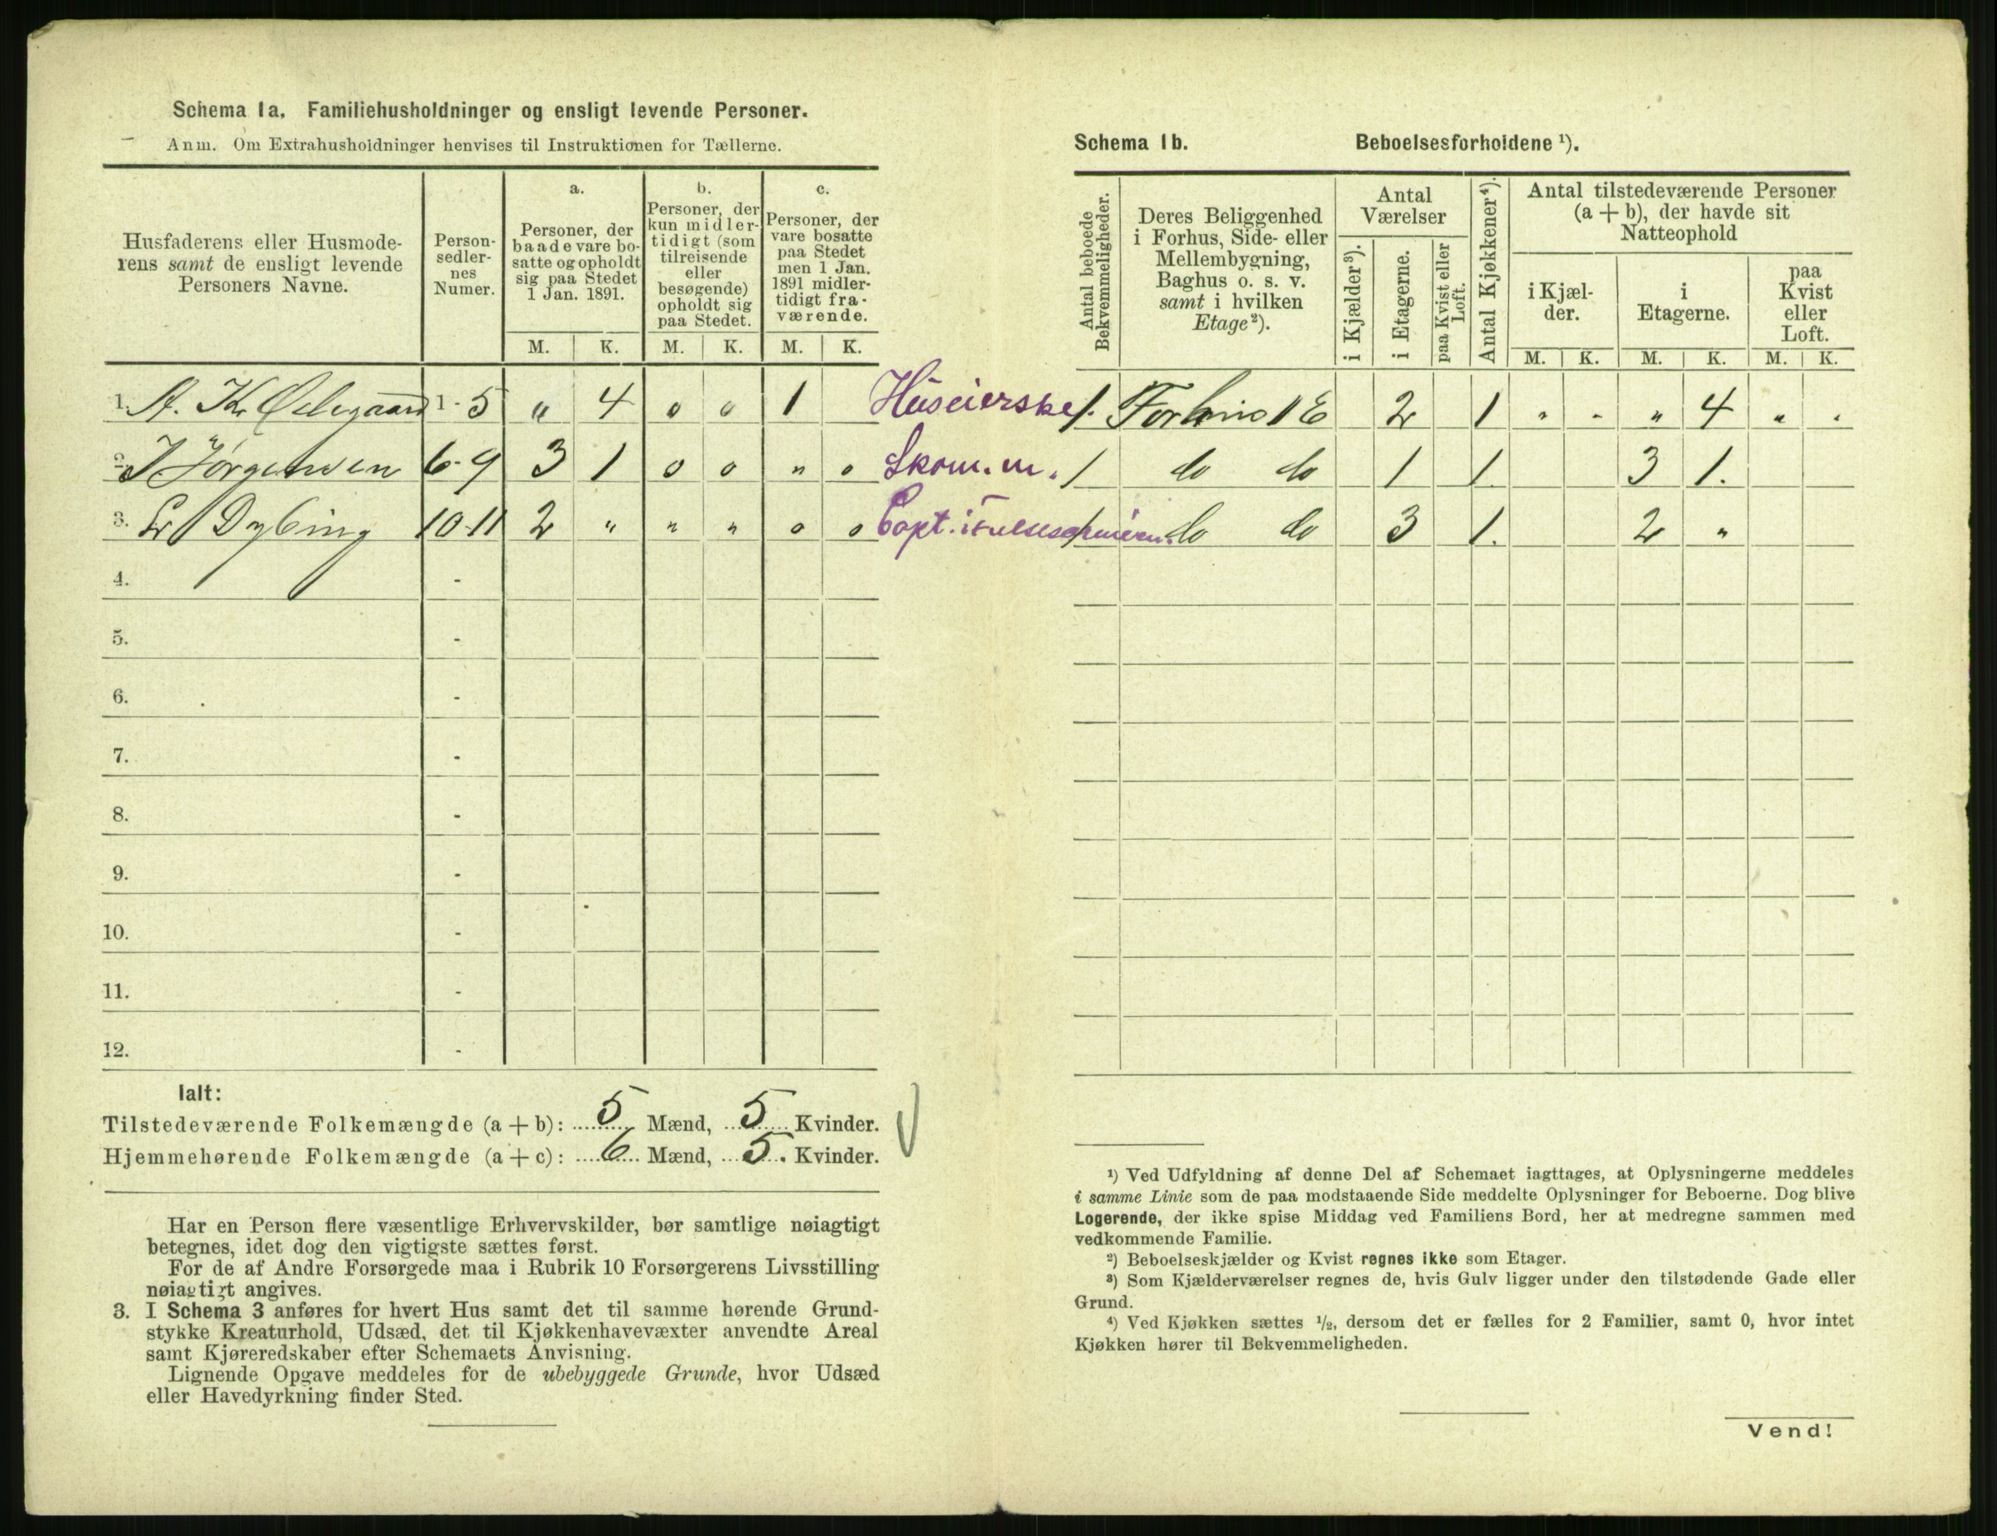 Schema 1a. Familiehusholdninger og ensligt levende Personer.
Anm. Om Extrahusholdninger henvises til Instruktionen for Tællerne.
Husfaderens eller Husmode-
rens samt de ensligt levende
Personers Navne.
Person-
sedler-
nes
Numer.
a.
Personer, der
baade vare bo-
satte og opholdt
sig paa Stedet
1 Jan. 1891.
b.
Personer, der
kun midler-
tidigt (som
tilreisende
eller
besøgende)
opholdt sig
paa Stedet.
c.
Personer, der
vare bosatte
paa Stedet
men 1 Jan.
1891 midler-
tidigt fra-
værende.
M. K. M. K. M. K.
1. A. Kr Ødegaard 1-5 „ 4 0 0 1 Huseierske
2. J Jørgensen 6-9 3 1 0 0 „ 0 Skom. m.
3. Dybing 10-11 2 „ „ „ 0 0 Capt. i
4. -
5. -
6. -
7. -
8. -
9. -
10. -
11. -
12. -
Ialt:
Tilstedeværende Folkemængde (a + b): 5 Mænd, 5 Kvinder.
Hjemmehørende Folkemængde (a + c): 6 Mænd, 5 Kvinder.
Har en Person flere væsentlige Erhvervskilder, bør samtlige nøiagtigt
betegnes, idet dog den vigtigste sættes først.
For de af Andre Forsørgede maa i Rubrik 10 Forsørgerens Livsstilling
nøiagtigt angives.
3. I Schema 3 anføres for hvert Hus samt det til samme hørende Grund-
stykke Kreaturhold, Udsæd, det til Kjøkkenhavevæxter anvendte Areal
samt Kjøreredskaber efter Schemaets Anvisning.
Lignende Opgave meddeles for de ubebyggede Grunde, hvor Udsæd
eller Havedyrkning finder Sted.
Schema 1b. Beboelsesforholdene ¹).
Antal beboede
Bekvemmeligheder.
Deres Beliggenhed
i Forhus, Side- eller
Mellembygning,
Baghus o. s. v.
samt i hvilken
Etage²).
Antal
Værelser
i Kjælder³).
i Etagerne.
paa Kvist eller
Loft.
Antal Kjøkkener⁴).
Antal tilstedeværende Personer
(a + b), der havde sit
Natteophold
i Kjæl-
der.
i
Etagerne.
paa
Kvist
eller
Loft.
M. K. M. K. M. K.
1. Forhus 1 E 2 1 „ „ „ 4 „ „
1 do do 1 1. 3 1.
1 do do 3 1. 2 „
¹) Ved Udfyldning af denne Del af Schemaet iagttages, at Oplysningerne meddeles
i samme Linie som de paa modstaaende Side meddelte Oplysninger for Beboerne. Dog blive
Logerende, der ikke spise Middag ved Familiens Bord, her at medregne sammen med
vedkommende Familie.
²) Beboelseskjælder og Kvist regnes ikke som Etager.
³) Som Kjælderværelser regnes de, hvis Gulv ligger under den tilstødende Gade eller
Grund.
⁴) Ved Kjøkken sættes ½, dersom det er fælles for 2 Familier, samt 0, hvor intet
Kjøkken hører til Bekvemmeligheden.
Vend!